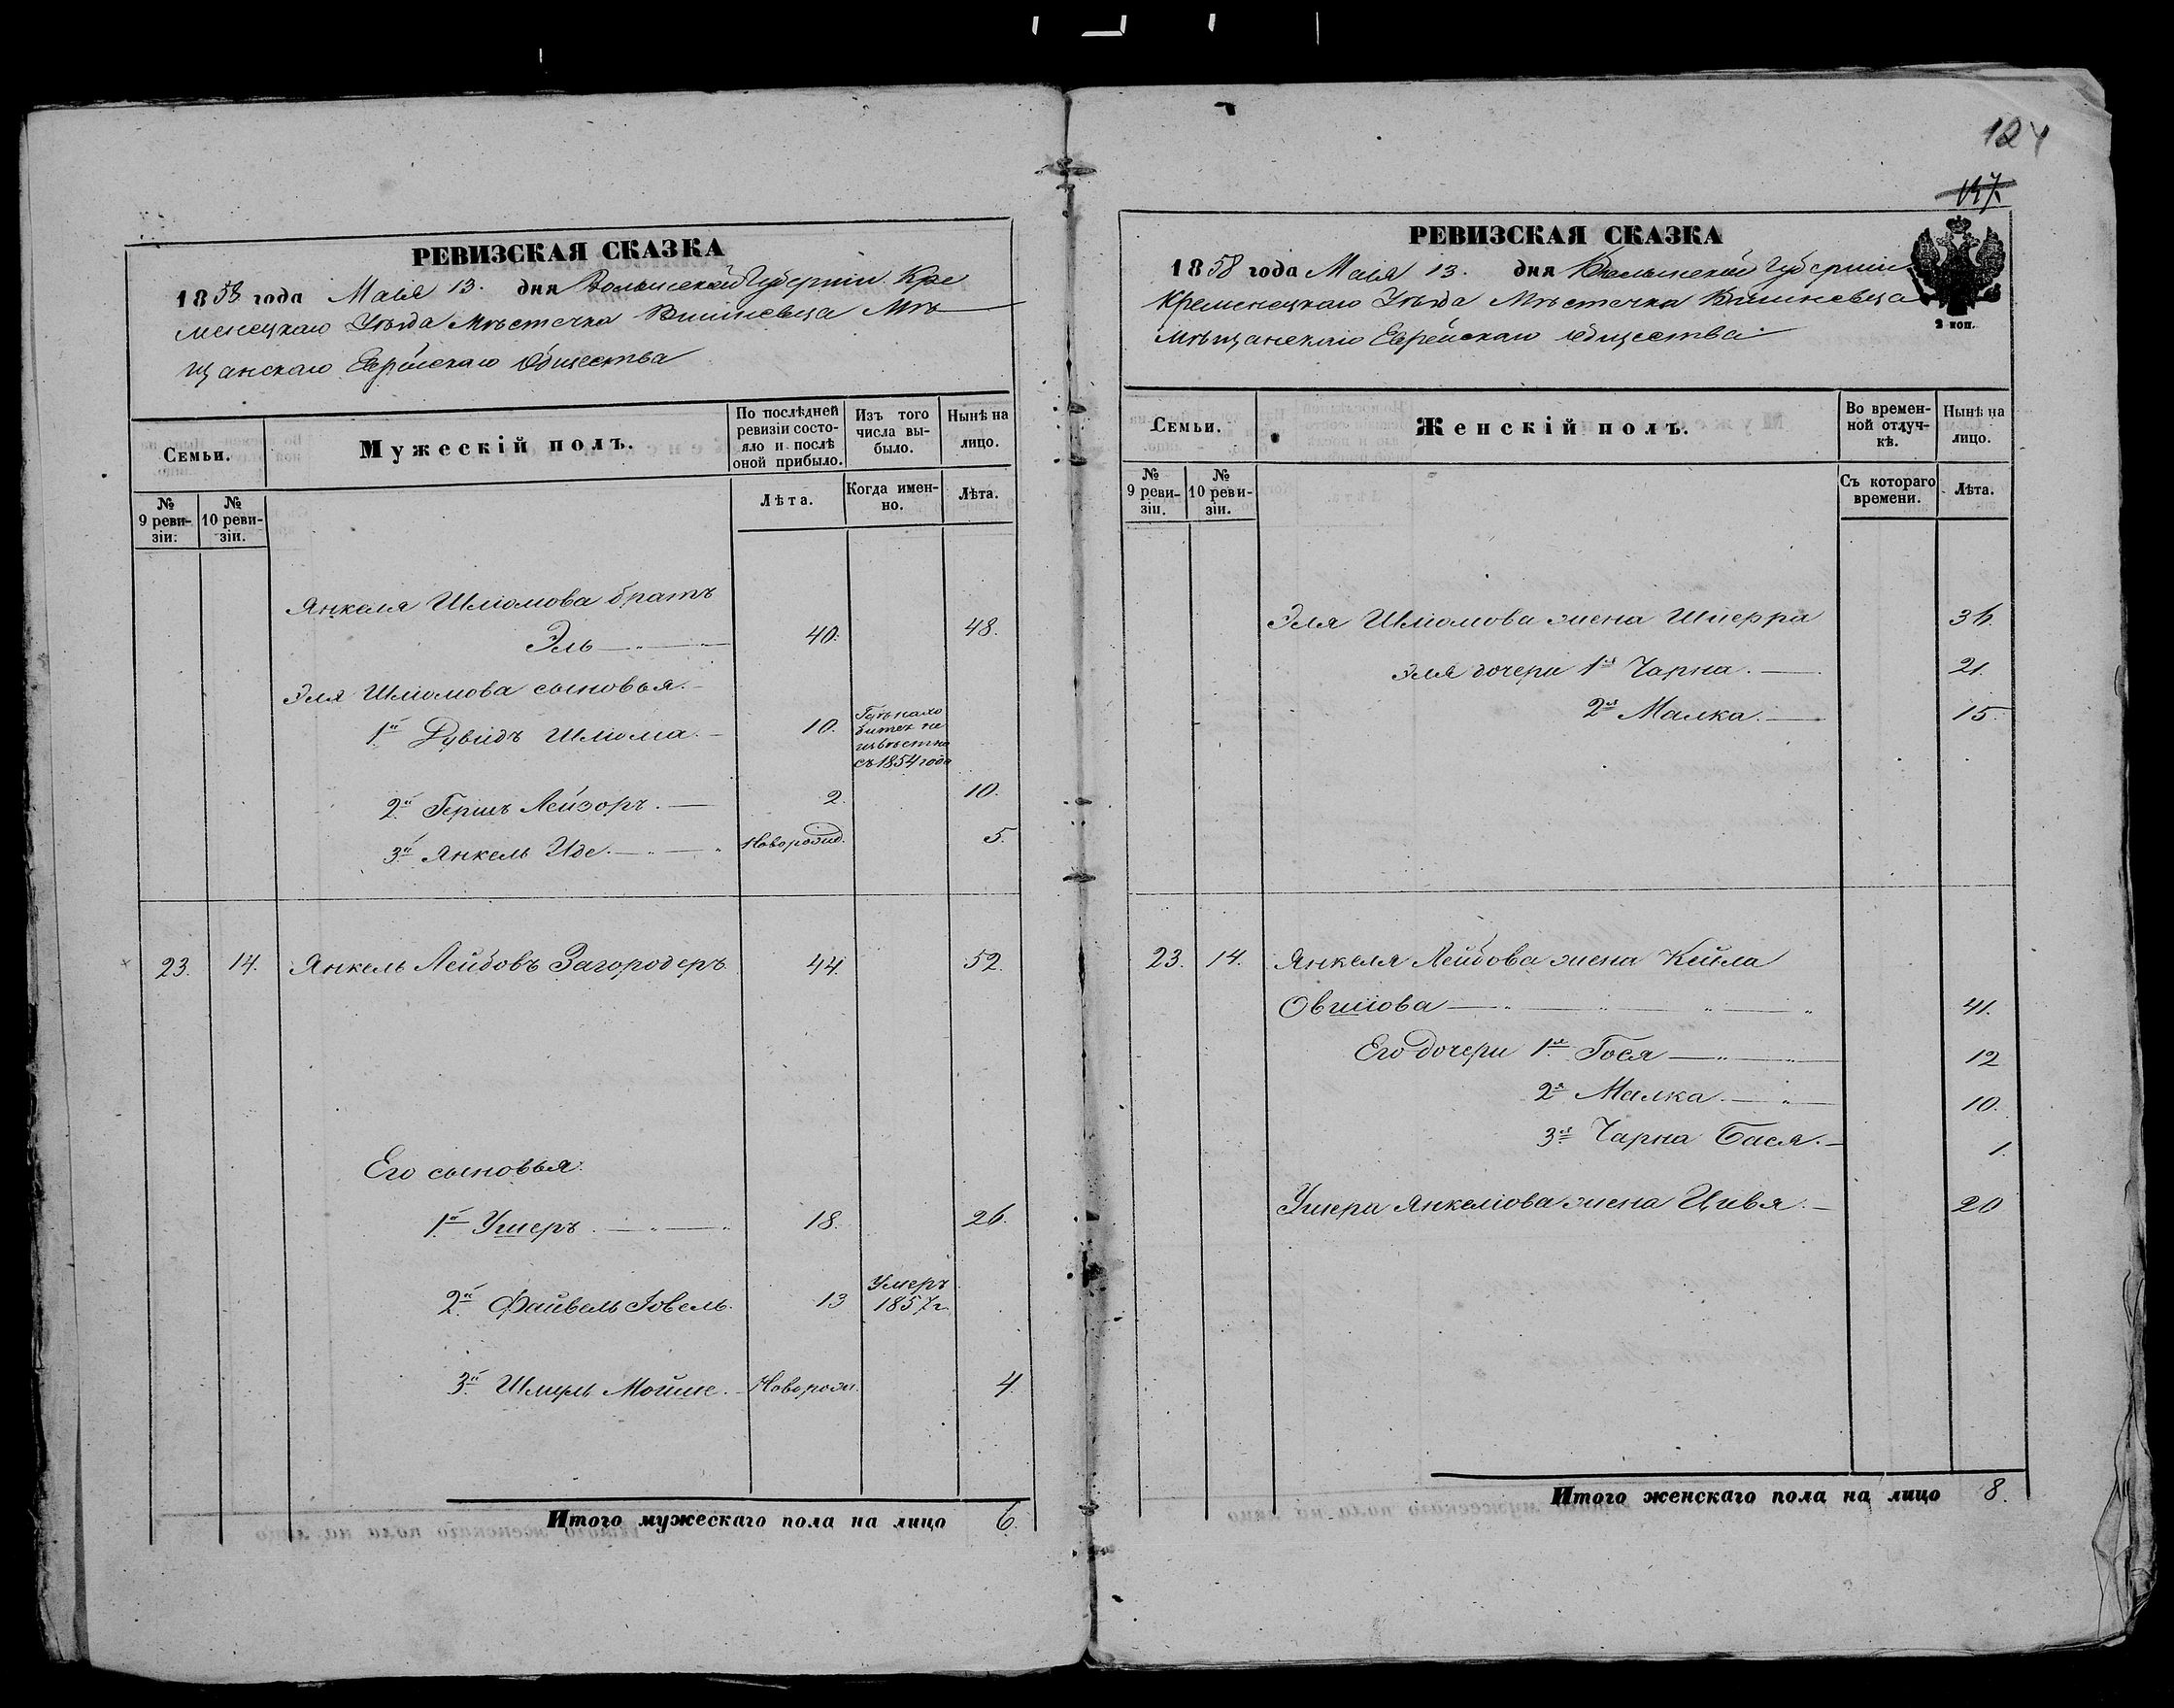 124
137
РЕВИЗСКАЯ СКАЗКА
1858 года Маія 13. дня Волынской Губерніи Кре
менецкаго Уѣзда Мѣстечка Вишневца Мѣ
щанскаго Еврейскаго Общества
Семьи.
Мужескій полъ.
По послѣдней ревизіи состояло и послѣ оной прибыло.
Изъ того числа выбыло.
Нынѣ на лицо.
№ 9 ревизіи.
№ 10 ревизіи.
Лѣта.
Когда именно.
Лѣта.
Янкеля Шліомова братъ
Эль 40. 48.
Эля Шліомова сыновья.
1й Дувидъ Шліома. 10. неизвѣстно
съ 1854 года
2й Гершъ Лейзоръ. 2. 10.
3й Янкель Иде. Новорожд. 5.
23. 14. Янкель Лейбовъ Загородеръ 44. 52.
Его сыновья.
1й Ушеръ. 18. 26.
2й Файвель Іовель. 13 Умеръ
1857г.
3й Шмуль Мойше. Новорож. 4.
Итого мужескаго пола на лицо 6.
РЕВИЗСКАЯ СКАЗКА
1858 года Маія 13. дня Волынской Губерніи
Кременецкаго Уѣзда Мѣстечка Вишневца
Мѣщанскаго Еврейскаго общества
2 коп.
Семьи.
Женскій полъ.
Во временной отлучкѣ.
Нынѣ на лицо.
№ 9 ревизіи.
№ 10 ревизіи.
Съ котораго времени.
Лѣта.
Эля Шліомова жена Шперра 36.
Эля дочери 1я Чарна. 21.
2я Малка. 15.
23. 14. Янкеля Лейбова жена Кейла
Овшіова 41.
Его дочери 1я Гося 12
2я Малка. 10.
3я Чарна Бася. 1.
Ушера Янкеліова жена Цивя. 20
Итого женскаго пола на лицо 8.